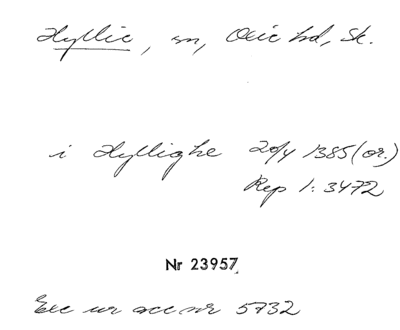 Hyllie, sn, Oxie hd, Sk.
i Hyllighe 20/4 1385 (or.)
Rep 1: 3472
Nr 23957
Exc ur acc nr 5732